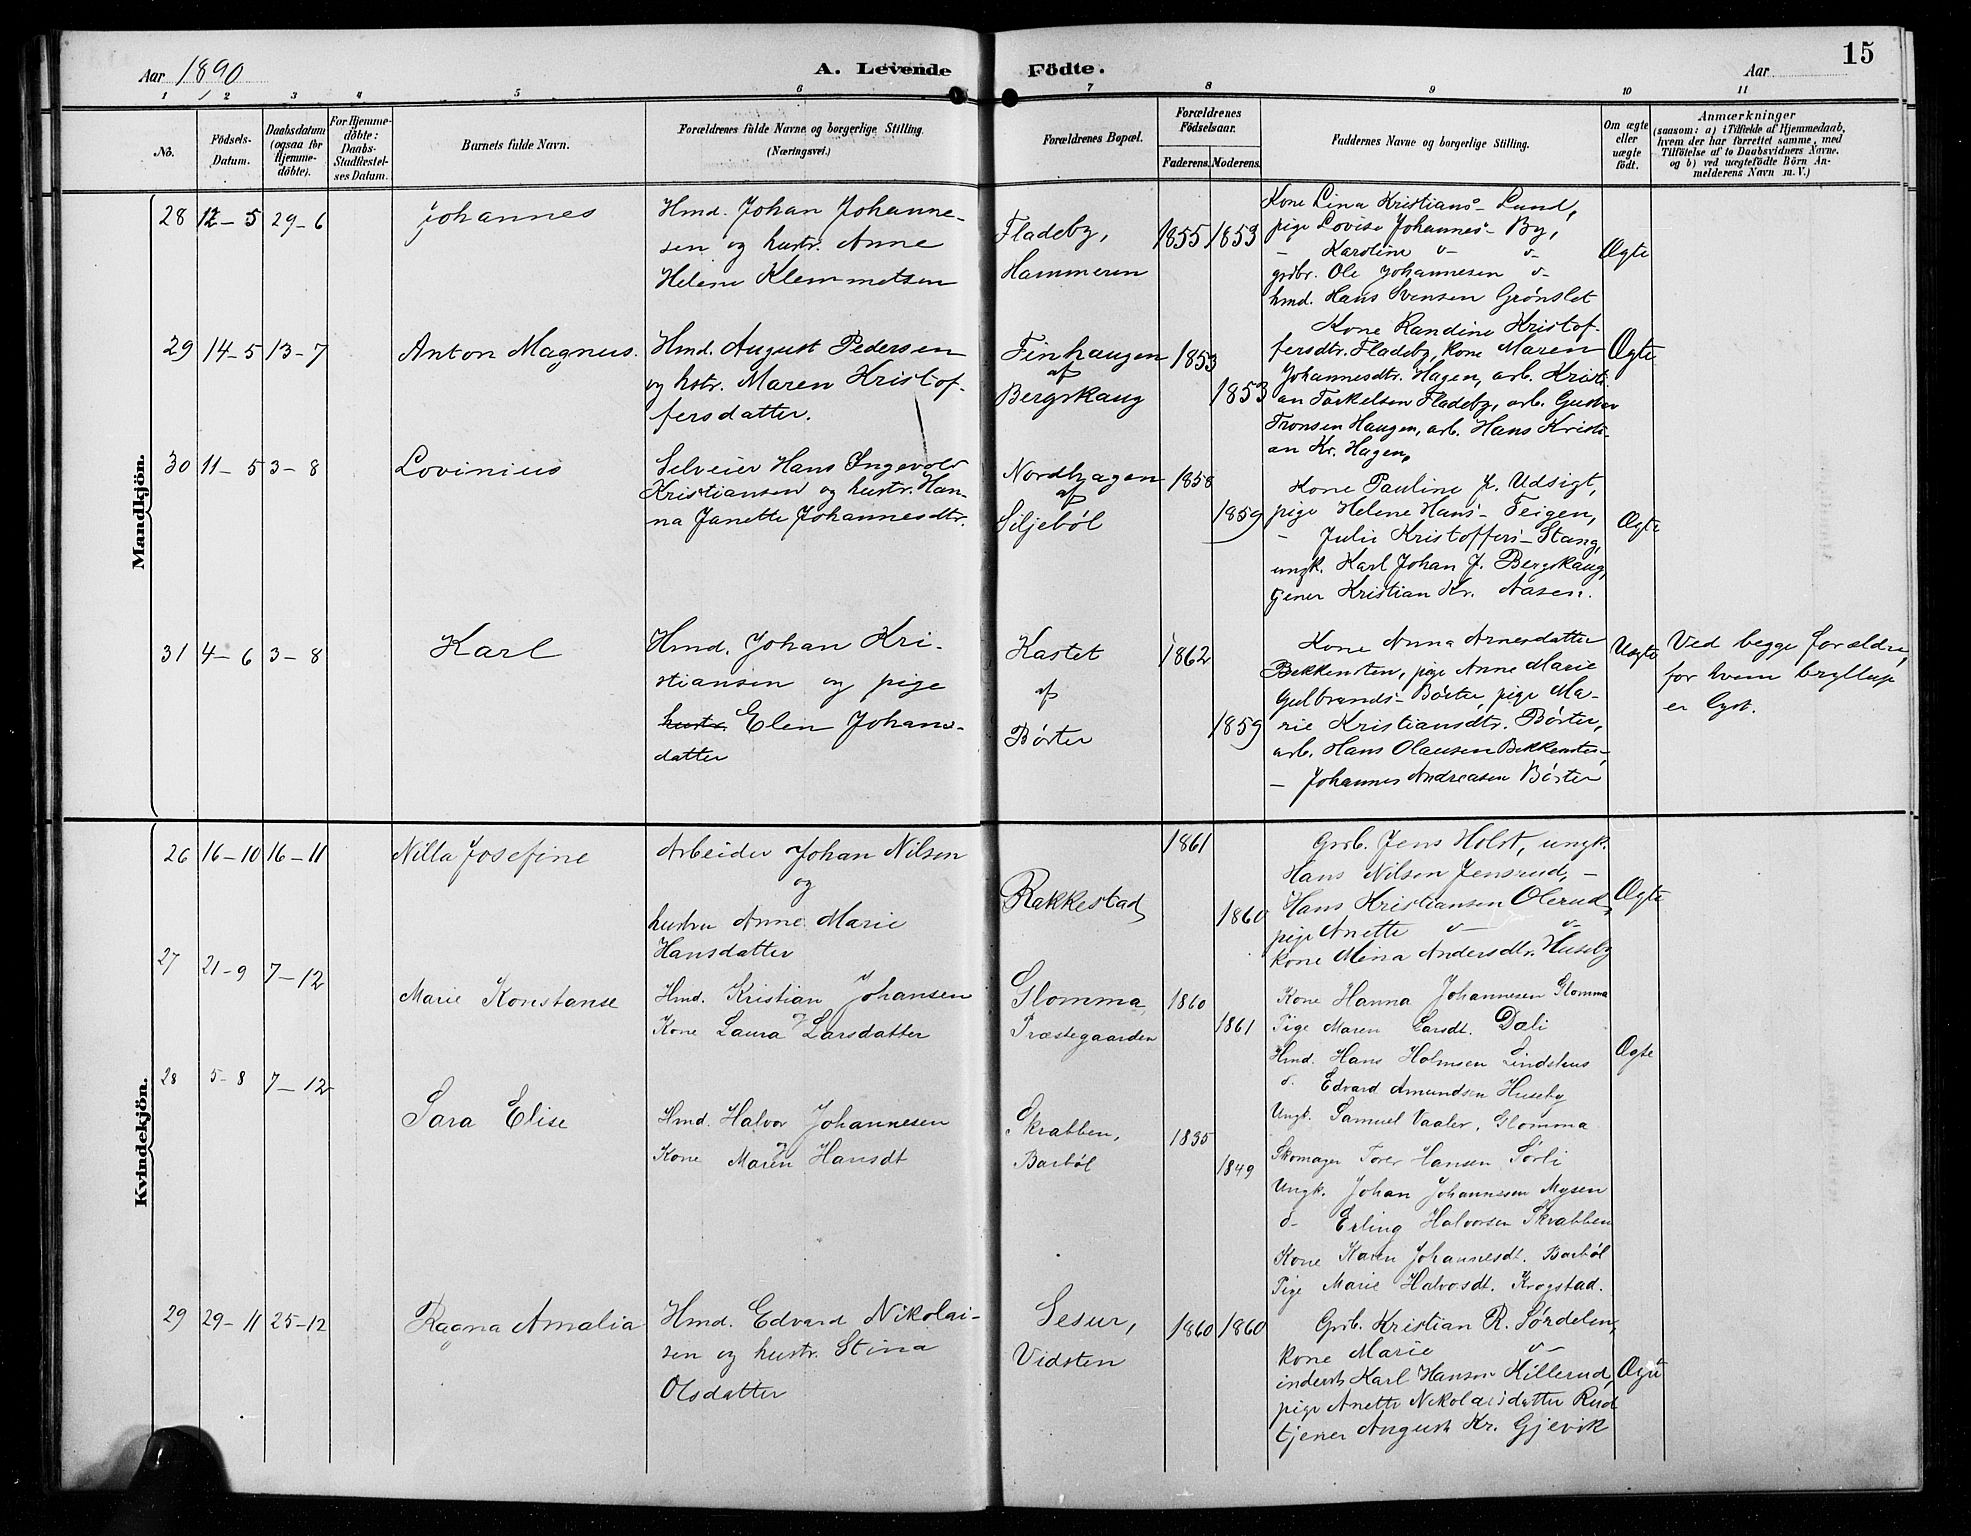 15
Aar 1890
A. Levende Födte.
Aar
1 2 3 4 5 6 7 8 9 10 11
No.
Födsels-Datum.
Daabsdatum (ogsaa for Hjemmedöbte).
For Hjemmedöbte: Daabs-Stadfestelses Datum.
Barnets fulde Navn.
Forældrenes fulde Navne og borgerlige Stilling.
(Næringsvei.)
Forældrenes Bopæl.
Forældrenes Födselsaar.
Faderens. Moderens.
Faddernes Navne og borgerlige Stilling.
Om ægte eller uægte födt.
Anmærkninger
(saasom: a) i Tilfælde af Hjemmedaab,
hvem der har forrettet samme, med
Tilföielse af to Daabsvidners Navne.
og b) ved uægtefödte Börn An-
melderens Navn m. V.)
Mandkjön.
28 12–5 29–6 Johannes
Hmd. Johan Johanne-
sen og hustr. Anne
Helene Klemmetsen
Fladeby,
Hammeren
1855 1853
Kone Lina Kristians- Lund,
pige Lovise Johannes- By,
– Karoline v– v–
grdbr. Ole Johannesen v–
hmd. Hans Svensen Grønslet
Ægte
29 14–5 13–7 Anton Magnus.
Hmd. August Pedersen
og hstr. Maren Kristof-
fersdatter.
Finhaugen
af
Bergskaug
1853
1853
Kone Randine Kristof-
fersdtr. Fladeby, kone Maren
Johannesdtr. Hagen, arb. Kristi-
an Torkelsen Fladeby, arb. Gustav
Tronsen Haugen, arb. Hans Kristi-
an Kr. Hagen,
Ægte
30 11–5 3–8 Lovinius
Selveier Hans Ingevold
Kristiansen og hustr. Han-
na Janette Johannesdtr.
Nordhagen
af
Siljeböl
1858
1859
Kone Pauline J. Udsigt,
pige Helene Hans- Teigen,
– Julie Kristoffers- Stang,
ungk. Karl Johan J. Bergskaug,
tjener Kristian Kr. Aasen.
Ægte
31 4–6 3–8 Karl
Hmd. Johan Kri-
stiansen og pige
hustr. Elen Johans-
datter
Kastet
af
Börter
1862
1859
Kone Anna Arnesdatter
Bekkensten, pige Anne Marie
Gulbrands- Börter, pige Ma-
rie Kristiansdtr. Börter,
arb. Hans Olausen Bekkensten,
– Johannes Andreasen Börter
Uægte
Ved begge forældre,
for hvem bryllup
er lyst.
Kvindekjön.
26 16–10 16–11 Nilla Josefine
Arbeider Johan Nilsen
og
hustru Anne Marie
Hansdatter
Rakkestad
1861
1860
Grb. Jens Holst, ungk.
Hans Nilsen Jensrud, –
Hans Kristiansen Olerud,
pige Anette v– v–
kone Mina Andersdtr. Huseby
Ægte
27 21–9 7–12 Marie Konstanse
Hmd. Kristian Johansen
Kone Laura Larsdatter
Glomma,
Præstegaarden
1860
1861
Kone Hanna Johannesen Glomma
Pige Maren Larsdt. Dæli
Hmd. Hans Holmsen Lindshus
d. Edvard Amundsen Huseby
Ungk. Samuel Vaaler, Glomma
Ægte
28 5–8 7–12 Sara Elise
Hmd. Halvor Johannesen
Kone Maren Hansdt
Skrabben,
Barböl
1835
1849
Skomager Torer Hansen Sörli
Ungk. Johan Johannesen Mysen
d– Erling Halvorsen Skrabben
Kone Karen Johannesdt. Barböl
Pige Marie Halvorsdt. Krogstad.
29 29–11 25–12 Ragna Amalia
Hmd. Edvard Nikolai-
sen og hustr. Stina
Olsdatter
Sesur,
Vidsten
1860 1860
Grb. Kristian R. Sørdelen,
kone Marie v–
inderst Karl Hansen Hillerud,
pige Anette Nikolaisdatter Rud
tjener August Kr. Gjevik
Ægte